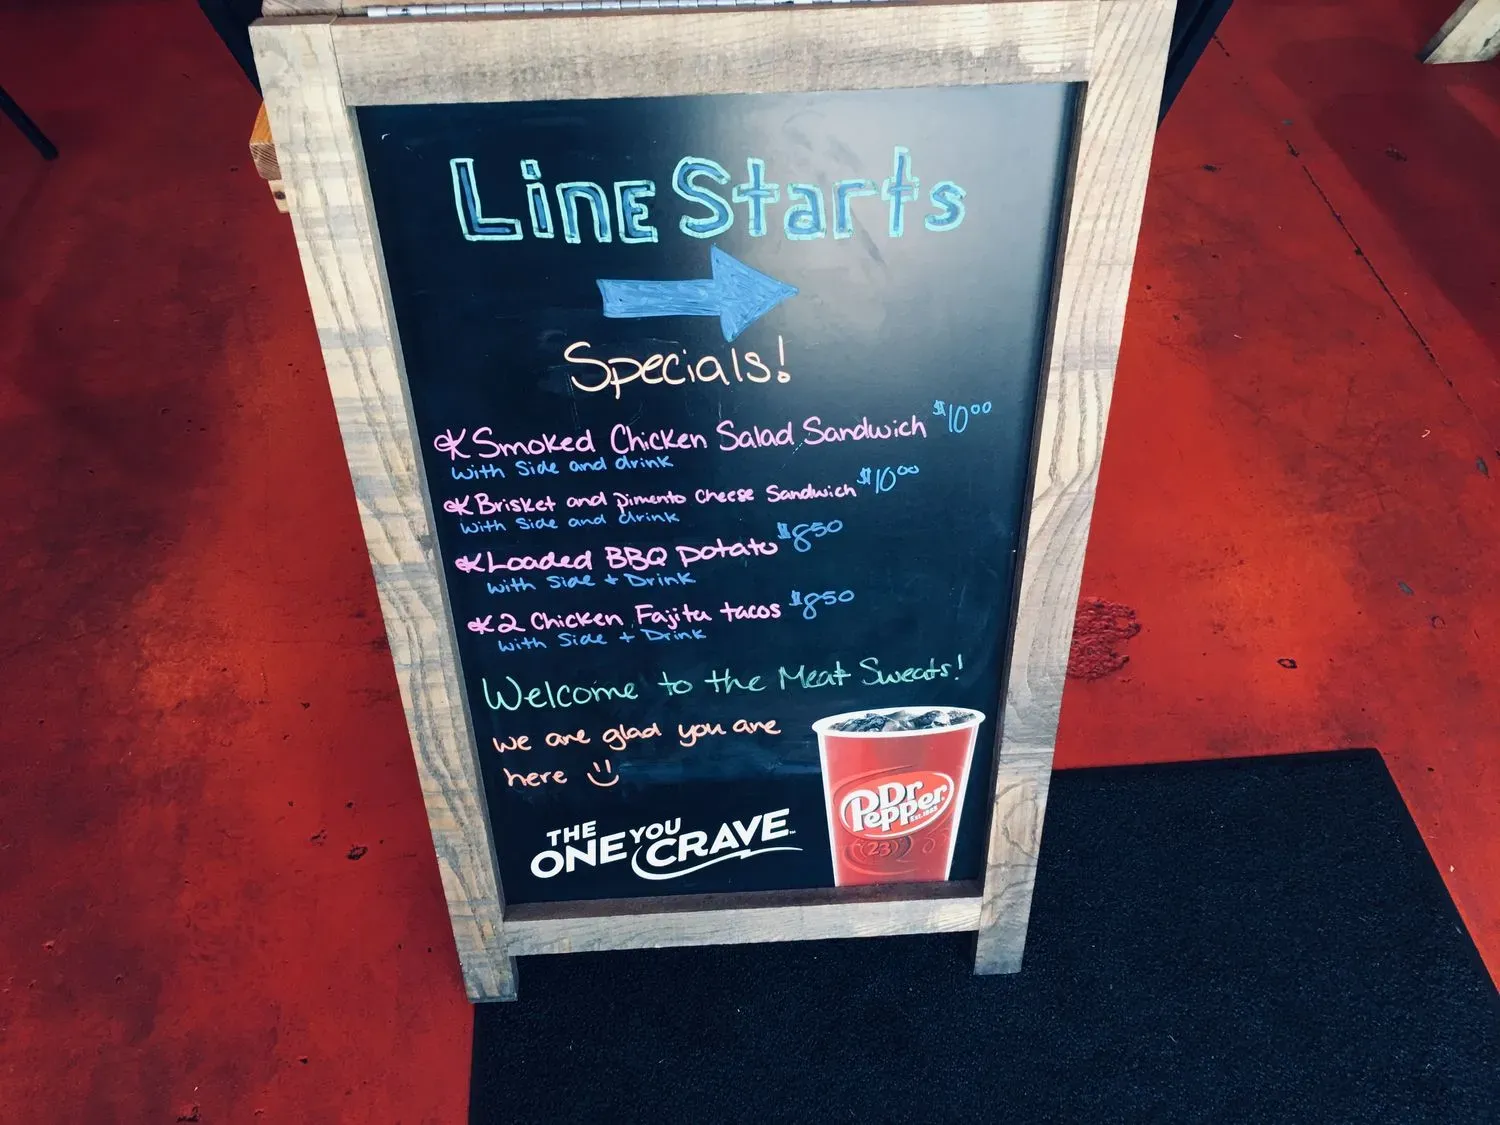 Line Starts
Specials!
Smoked Chicken Salad Sandwich $10⁰⁰
with Side and drink
Brisket and Pimento Cheese Sandwich $10⁰⁰
with Side and drink
Loaded BBQ Potato $8⁵⁰
with Side + Drink
2 Chicken Fajita tacos $8⁵⁰
with Side + Drink
Welcome to the Meat Sweats!
we are glad you are
here
THE
ONE YOU
CRAVE™
Dr
Pepper
Est. 1885
23